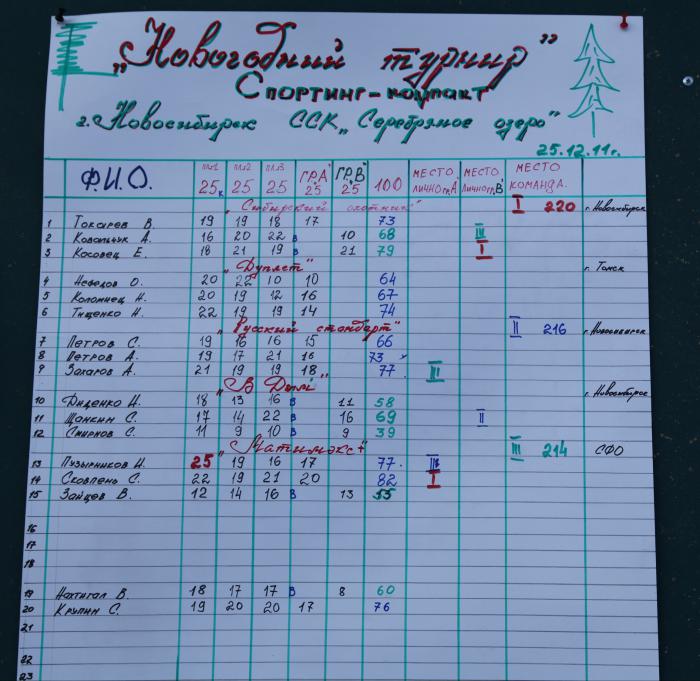 „Новогодний турнир”
Спортинг-компакт
г. Новосибирск ССК „Серебряное озеро”
25.12.11г.
Ф.И.О. пл1 25к пл2 25 пл3 25 ГР.„А” 25 ГР.„В” 25 100 МЕСТО ЛИЧНО ГР.„А” МЕСТО ЛИЧНО ГР.„В” МЕСТО КОМАНДА.
„Сибирский охотник” I 220 г. Новосибирск
1 Токарев В. 19 19 18 17 73
2 Ковальчук А. 16 20 22 в 10 68 III
3 Косовец Е. 18 21 19 в 21 79 I
„Дуплет” г. Томск
4 Нефедов О. 20 22 10 10 64
5 Коломиец Н. 20 19 12 16 67
6 Тищенко Н. 22 19 19 14 74
„Русский стандарт” II 216 г. Новосибирск
7 Петров С. 19 16 16 15 66
8 Петров А. 19 17 21 16 73
9 Захаров А. 21 19 19 18 77 III
„В Dali” г. Новосибирск
10 Диденко И. 18 13 16 в 11 58
11 Щанкин С. 17 14 22 в 16 69 II
12 Смирнов С. 11 9 10 в 9 39
III 214 СФО
13 Пузырников И. 25 19 16 17 77
14 Сковпень С. 22 19 21 20 82 I
15 Зайцев В. 12 14 16 в 13 55
16
17
18
19 Нахтигал В. 18 17 17 в 8 60
20 Крупин С. 19 20 20 17 76
21
22
23